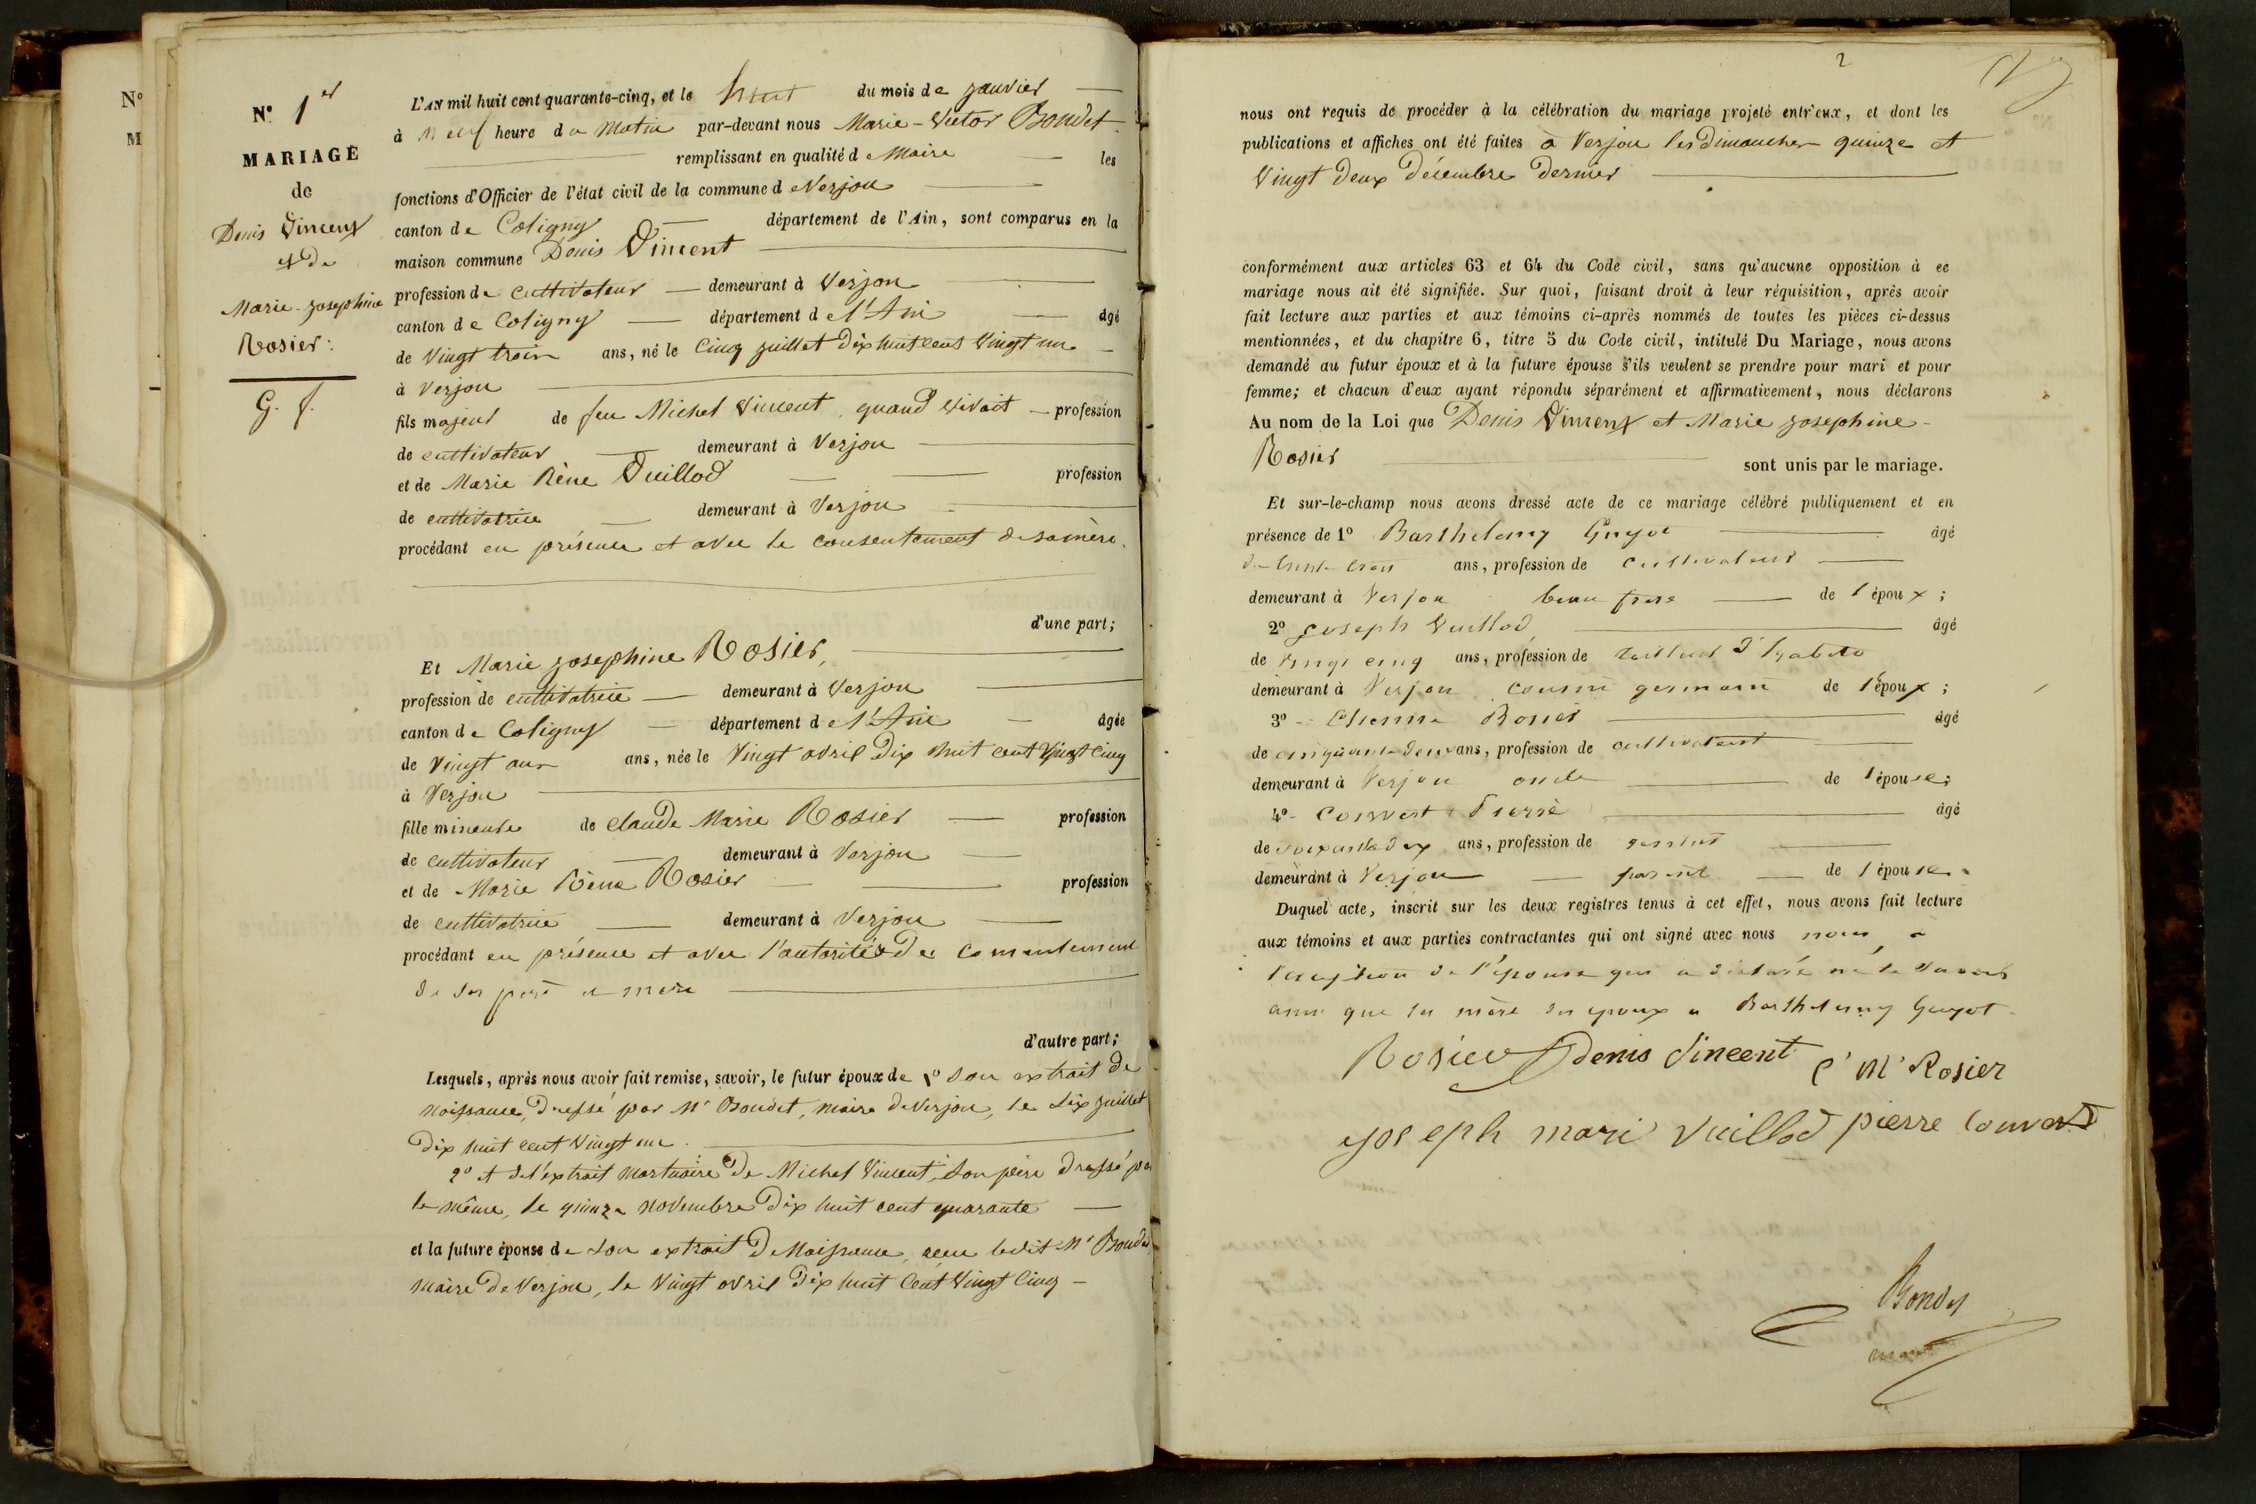 N° 1er
MARIAGE
de
Denis Vincent
et de
Marie-Josephine
Rosier:
G. f.
L'AN mil huit cent quarante-cinq, et le huit du mois de janvier
à neuf heure du matin par-devant nous Marie-Victor Boudet
remplissant en qualité de Maire les
fonctions d'Officier de l'état civil de la commune de Verjon
canton de Coligny département de l'Ain, sont comparus en la
maison commune Denis Vincent
profession de cultivateur demeurant à Verjon
canton de Coligny département de l'Ain âgé
de Vingt trois ans, né le Cinq juillet Dix huit cent Vingt un
à Verjon
fils majeur de feu Michel Vincent, quand vivait profession
de cultivateur demeurant à Verjon
et de Marie Rène Vuillod profession
de cultivatrice demeurant à Verjon
procédant en présence et avec le consentement de sa mère.
d'une part;
Et Marie Josephine Rosier,
profession de cultivatrice demeurant à Verjon
canton de Coligny département de l'Ain âgée
de Vingt ans ans, née le Vingt avril Dix huit cent Vingt Cinq
à Verjon
fille mineure de Claude Marie Rosier profession
de cultivateur demeurant à Verjon
et de Marie Rène Rosier profession
de cultivatrice demeurant à Verjon
procédant en présence et avec l'autorité et de consentement
de ses père et mère
d'autre part;
Lesquels, après nous avoir fait remise, savoir, le futur époux de 1° son extrait de
naissance, dressé par Mr Boudet, maire de Verjon, le six juillet
Dix huit cent Vingt un.
2° et de l'extrait mortuaire de Michel Vincent, son père dressé par
le même, le quinze novembre Dix huit cent quarante
et la future épouse de son extrait de Naissance, ledit Mr Boudet
maire de Verjon, le Vingt avril Dix huit Cent Vingt Cinq
2
nous ont requis de procéder à la célébration du mariage projeté entr'eux, et dont les
publications et affiches ont été faites à Verjon les Dimanches quinze et
Vingt deux Décembre Dernier
conformément aux articles 63 et 64 du Code civil, sans qu'aucune opposition à ce
mariage nous ait été signifiée. Sur quoi, faisant droit à leur réquisition, après avoir
fait lecture aux parties et aux témoins ci-après nommés de toutes les pièces ci-dessus
mentionnées, et du chapitre 6, titre 5 du Code civil, intitulé Du Mariage, nous avons
demandé au futur époux et à la future épouse s'ils veulent se prendre pour mari et pour
femme; et chacun d'eux ayant répondu séparément et affirmativement, nous déclarons
Au nom de la Loi que Denis Vincent et Marie Josephine
Rosier sont unis par le mariage.
Et sur-le-champ nous avons dressé acte de ce mariage célébré publiquement et en
présence de 1° Barthelemy Guyot âgé
de trente trois ans, profession de cultivateur
demeurant à Verjon beau frere de l'époux;
2° Joseph Vuillod âgé
de vingt cinq ans, profession de tailleur d'habits
demeurant à Verjon cousin germain de l'époux;
3° Etienne Rosier âgé
de cinquante deux ans, profession de cultivateur
demeurant à Verjon oncle de l'épouse;
4° Convert Pierre âgé
de soixante dix ans, profession de rentier
demeurant à Verjon parent de l'épouse.
Duquel acte, inscrit sur les deux registres tenus à cet effet, nous avons fait lecture
aux témoins et aux parties contractantes qui ont signé avec nous nous, a
l'exception de l'épouse qui a déclaré ne le savoir
ainsi que la mère des epoux et Barthelemy Guyot.
Rosier Denis Vincent C M Rosier
Joseph mari Vuillod pierre Convert
Boudet
maire